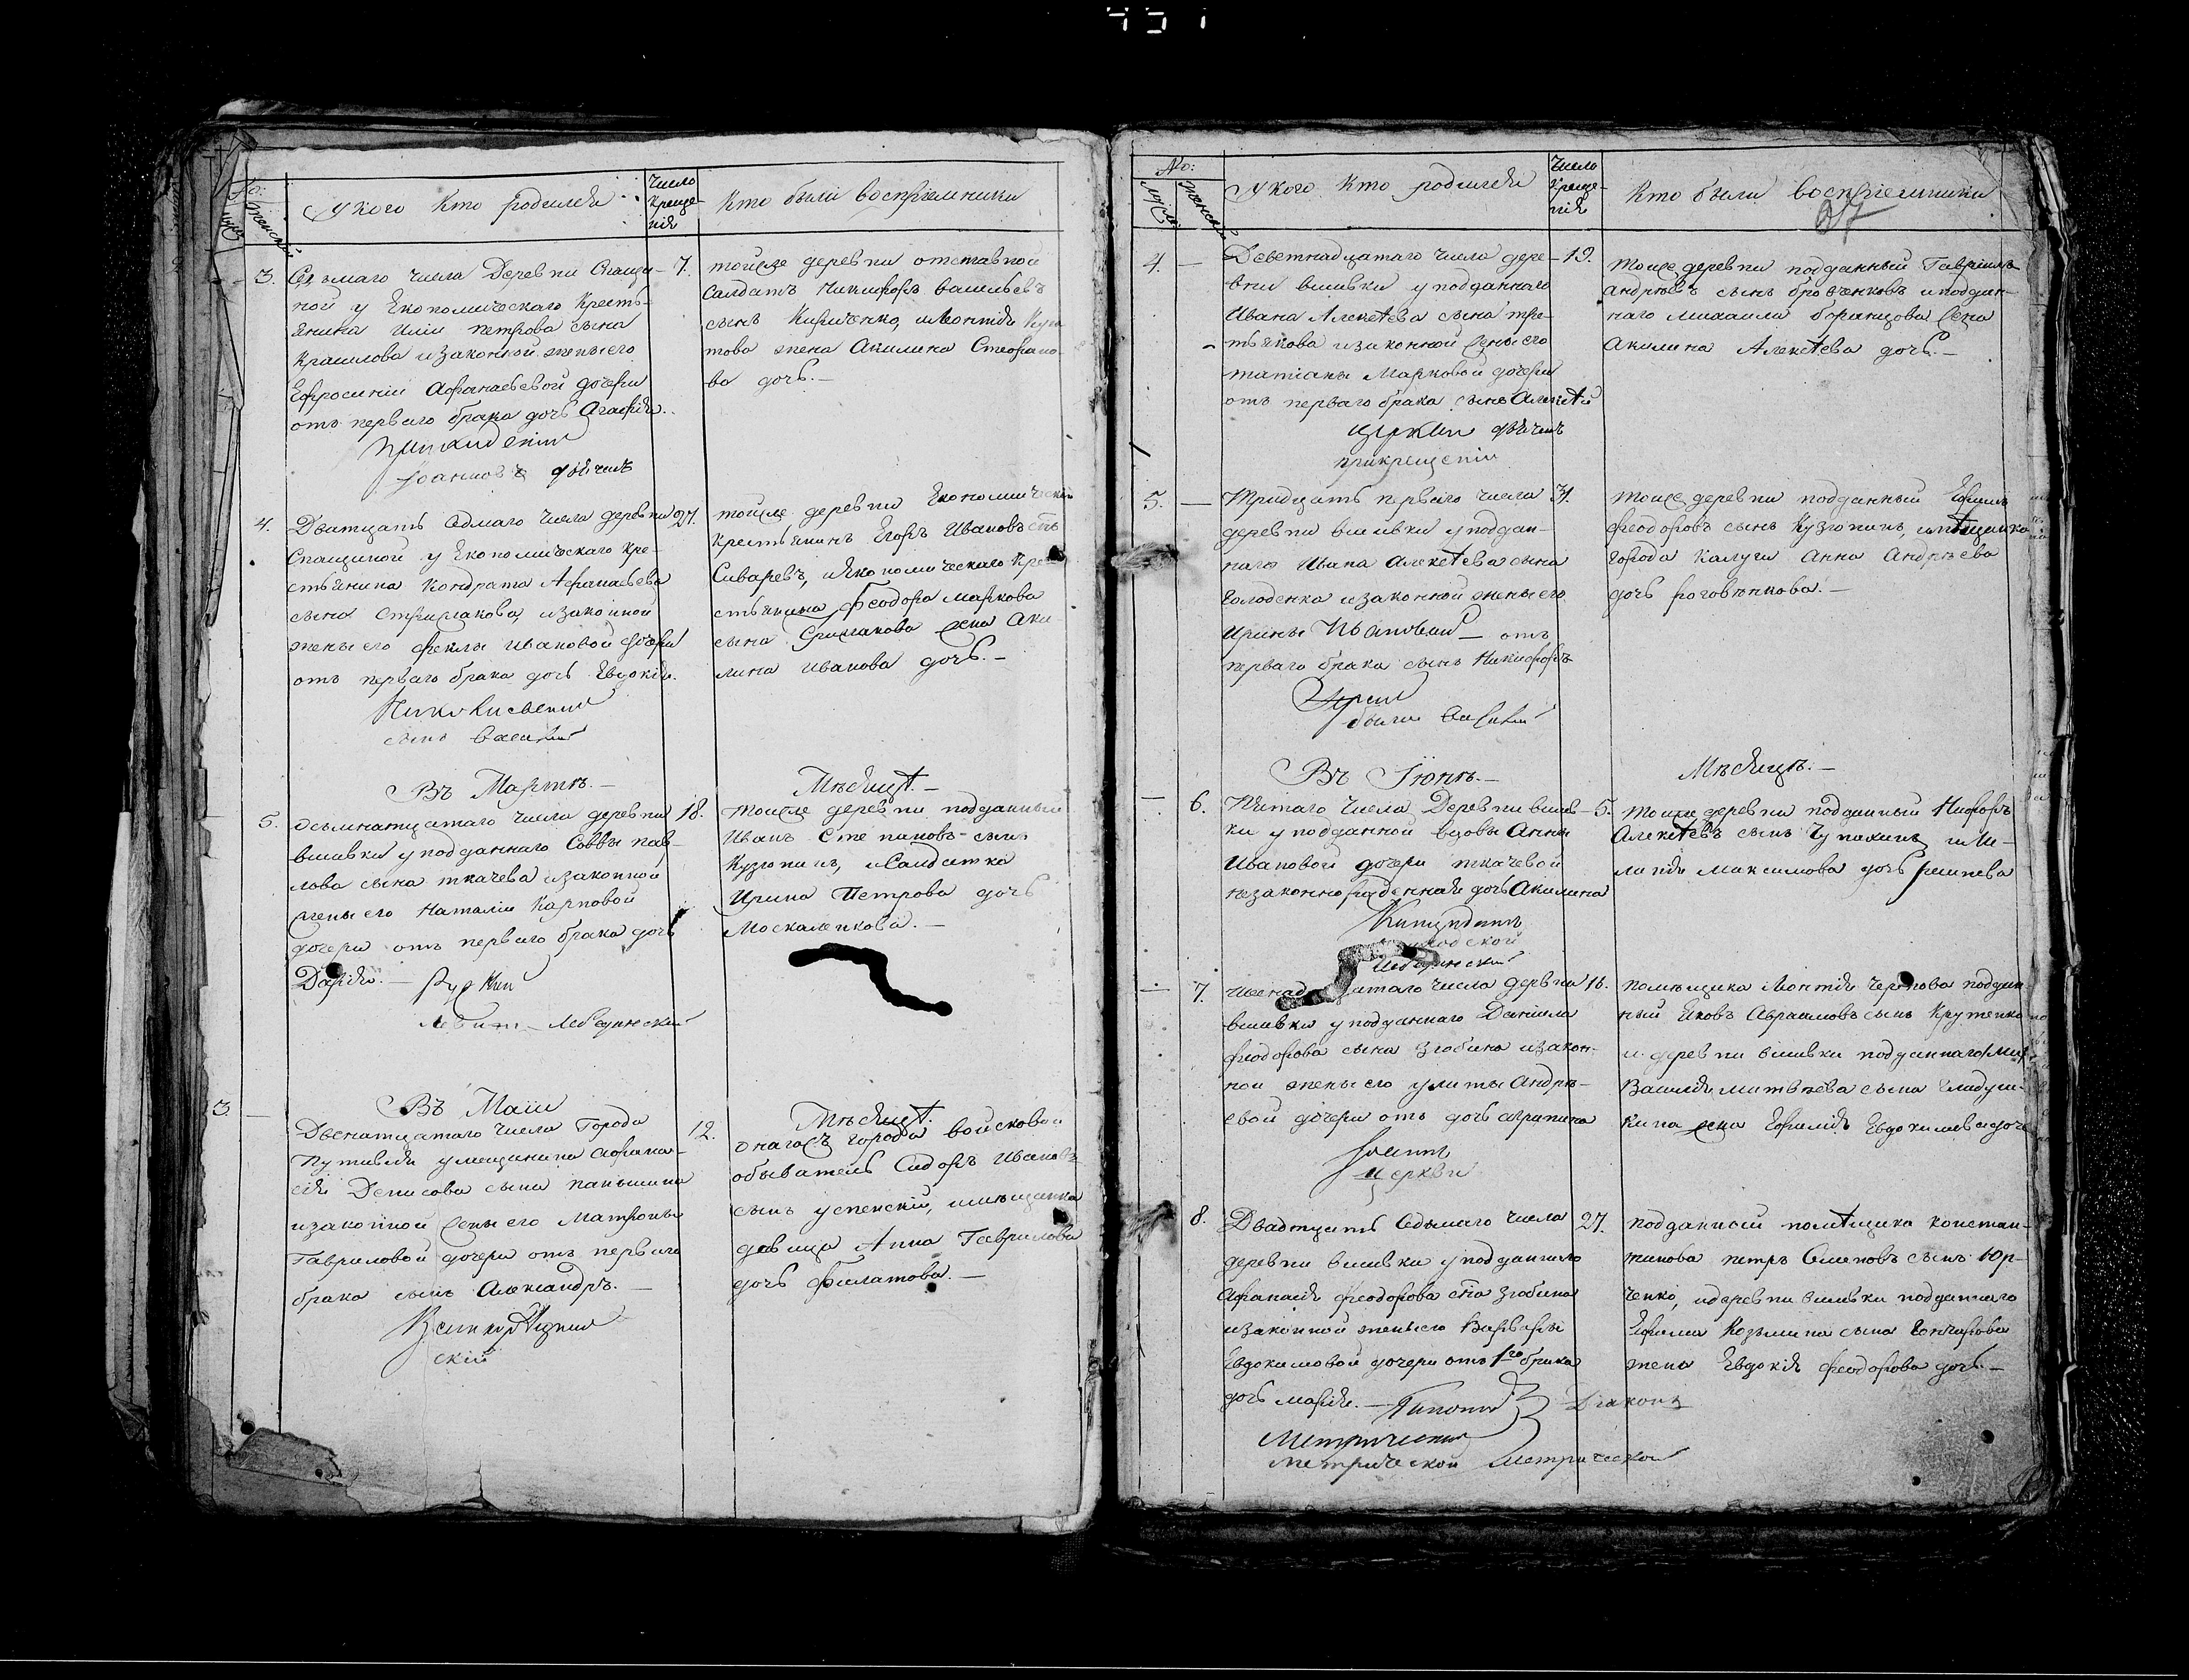 №:
Мужс.
Женскъ
У кого кто родился
Число
креще-
нія
Кто были восприемники
3.
Седьмаго числа Деревни Спащи-
ной у Економическаго Кресть-
янина Иліи петрова сына
Крашлова изаконной жены его
Ефросиніи Афанасьевой дочери
отъ перваго брака дочь Агафія.
7.
тойже деревни отставной
Салдатъ Никифоръ васильевъ
сынъ Кириченко, и Леонтія
това жена Акилина Стефано-
ва дочь.
4.
Дватцать Седмаго числа деревни
Спащиной у Економическаго Кре-
стьянина Кондрата Афанасьева
сына Стрижакова изаконной
жены его феклы ивановой дочери
отъ перваго брака дочь Евдокія.
27.
тойже деревни Економической
крестьянинъ Егоръ Ивановъ снъ
Сиваревъ, иЯкономическаго Кре
стьянина феодора маркова
сына Стрижакова жена Аки-
лина иванова дочь.
сынъ василій
Въ Мартѣ.
Мѣсяцѣ.
5.
осьмнатцатаго числа деревни
вшивки у подданнаго Саввы пав-
лова сына ткачева изаконной
жены его Наталіи Карповой
дочери отъ перваго брака дочь
Дарія.
18.
тойже деревни подданный
Иванъ Степановъ сынъ
Кузюпинъ, иСалдатка
Ирина Петрова дочь
Москаленкова.
Въ Маіи
Мѣсяцѣ.
3
Двенатцатаго числа Города
Путивля умещанина Афана-
сія Денисова сына паньшина
изаконной жены его Матроны
Гавриловой дочери отъ перваго
брака сынъ Александръ.
12.
онагожъ города войсковой
обыватель Сидоръ Ивановъ
сынъ успенскій, имѣщанка
девица Анна Гаврилова
дочь филатова.
скій
№:
Мужс
Женскъ
У кого кто родился
Число
креще-
нія
Кто были восприемники
4.
Деветнадцатаго числа дере-
вни вшивки у подданнаго
Ивана Алексѣева сына тре-
тьякова изаконной жены его
татіаны Марковой дочери
отъ перваго брака сынъ Алексѣй
церкви
прикрещеніи
19.
тоиже деревни подданный Гавріилъ
андрѣевъ сынъ бровенковъ иподдан-
наго михаила боранцова жена
Акилина Алексѣева дочь.
5.
Тридцать перваго числа
деревни вшивки у поддан-
наго Ивана Алексѣева сына
Голоденка изаконной жены его
Ирины Ивановой отъ
перваго брака сынъ Никифоръ
31.
тоиже деревни подданный Ефимъ
феодоровъ сынъ Кузюпинъ, имѣщанка
города Калуги Анна Андрѣева
дочь роговѣнкова.
Въ Іюнѣ.
Мѣсяцѣ.
6.
Пятаго числа Деревни вшив-
ки у подданной вдовы Анны
Ивановой дочери ткачевой
незаконнорожденная дочь Акилина
5.
Тоиже деревни подданный Никифоръ
Алексѣевъ сынъ Чупахинъ, иМе-
ланія Максимова дочь решнева
7.
числа деревни
вшивки у подданнаго Даніила
феодорова сына злобина изакон-
ной жены его улиты Андрѣ-
евой дочери дочь Агрипина
16.
помѣщика Леонтія Чернова поддан
ный Яковъ Авраамовъ сынъ Крутенко
и деревни вшивки подданнаго
Василія митвѣева сына
кина жена Ефимія Евдокимова дочь
церкви
8.
Двадцать Седьмаго числа
деревни вшивки у подданнаго
Афанасія феодорова сна злобина
изаконной жены его Варвары
Евдокимовой дочери отъ 1го брака
дочь марія.
27.
подданной помѣщика констан-
тинова петръ Семеновъ сынъ Юр-
ченко, идеревни вшивки подданаго
Ефима Козьмина сына Гончарова
жена Евдокія феодорова дочь.
Діаконъ
Метрической
метрической Метрической